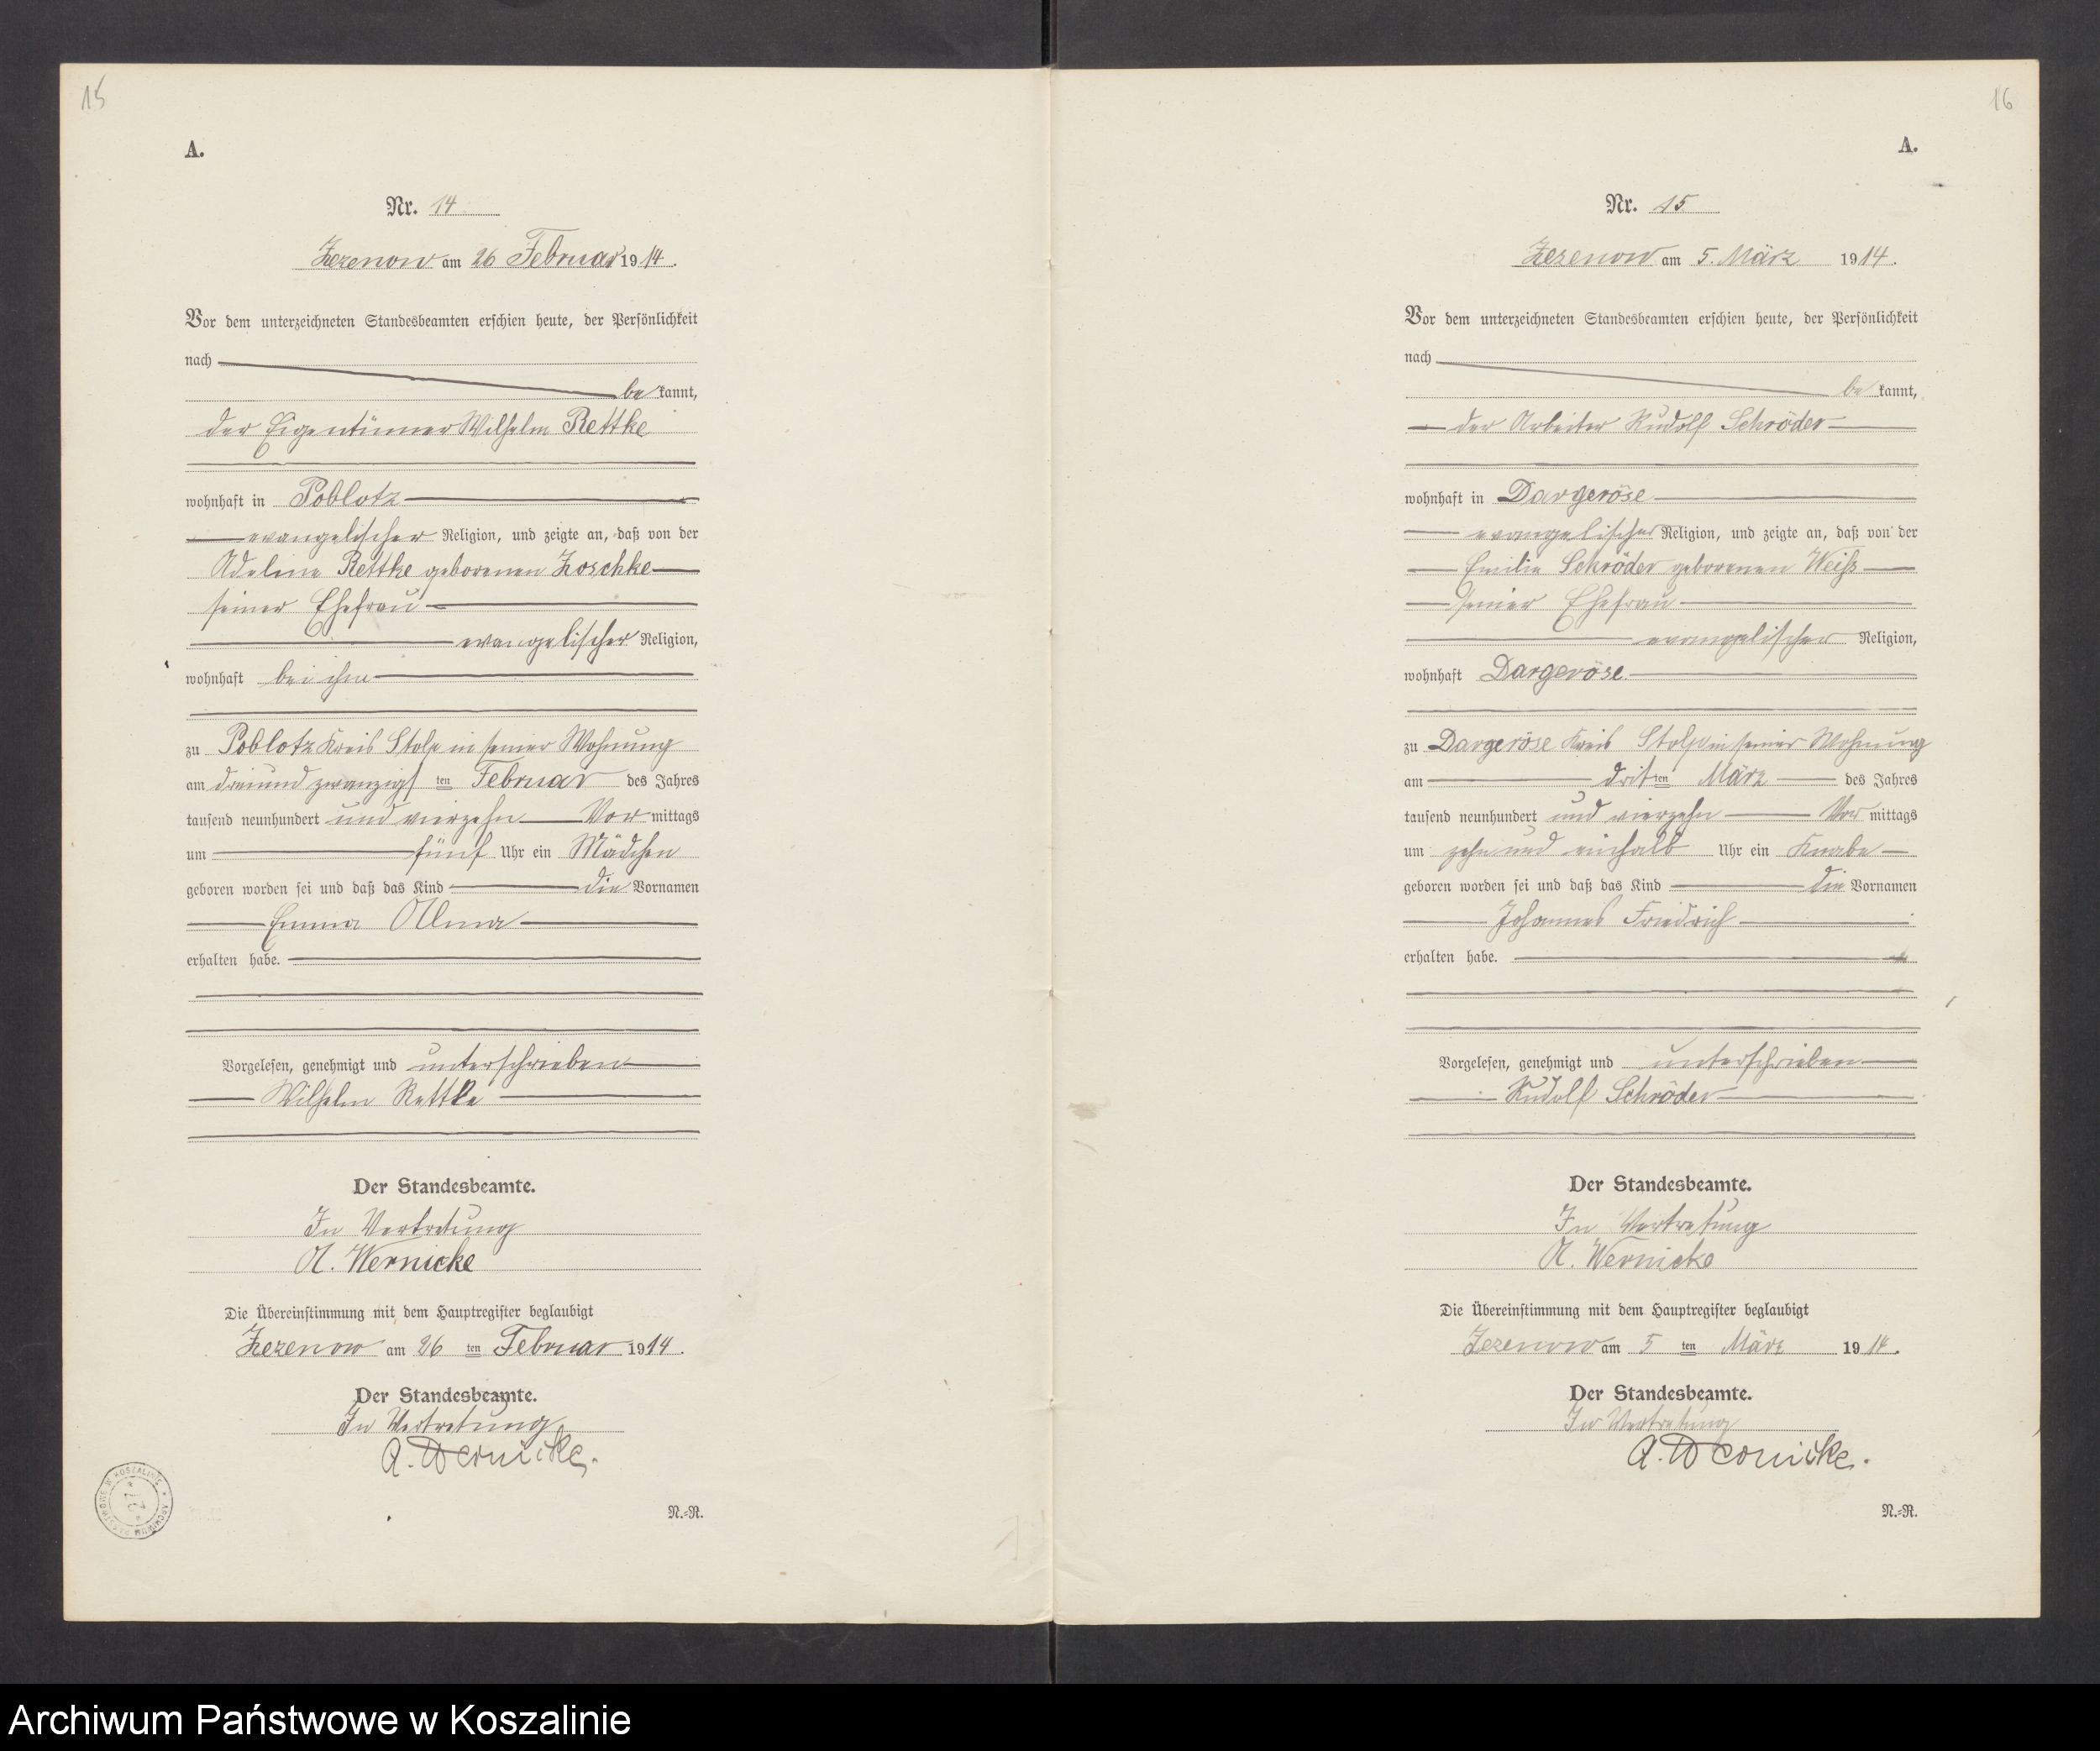 15
A.
Nr. 14
Zezenow am 26 Februar 1914.
Vor dem unterzeichneten Standesbeamten erschien heute, der Persönlichkeit
nach
be kannt,
der Eigentümer Wilhelm Rettke
wohnhaft in Poblotz
evangelischer Religion, und zeigte an, daß von der
Adeline Rettke geborenen Zoschke
seiner Ehefrau
evangelischer Religion,
wohnhaft bei ihm
zu Poblotz Kreis Stolp in seiner Wohnung
am dreiundzwanzigsten Februar des Jahres
tausend neunhundert und vierzehn Vor mittags
um fünf Uhr ein Mädchen
geboren worden sei und daß das Kind die Vornamen
Emma Alma
erhalten habe.
Vorgelesen, genehmigt und unterschrieben
Wilhelm Rettke
Der Standesbeamte.
In Vertretung
A. Wernicke
Die Übereinstimmung mit dem Hauptregister beglaubigt
Zezenow am 26 ten Februar 1914.
Der Standesbeamte.
In Vertretung
A. Wernicke.
N.=R.
ARCHIWUM PAŃSTWOWE W KOSZALINIE
16
A.
Nr. 15
Zezenow am 5. März 1914.
Vor dem unterzeichneten Standesbeamten erschien heute, der Persönlichkeit
nach
be kannt,
der Arbeiter Rudolf Schröder
wohnhaft in Dargeröse
evangelischer Religion, und zeigte an, daß von der
Emilie Schröder geborenen Weiß
seiner Ehefrau
evangelischer Religion,
wohnhaft Dargeröse
zu Dargeröse Kreis Stolp in seiner Wohnung
am dritten März des Jahres
tausend neunhundert und vierzehn Vor mittags
um zehn und einhalb Uhr ein Knabe
geboren worden sei und daß das Kind die Vornamen
Johannes Friedrich
erhalten habe.
Vorgelesen, genehmigt und unterschrieben
Rudolf Schröder
Der Standesbeamte.
In Vertretung
A. Wernicke
Die Übereinstimmung mit dem Hauptregister beglaubigt
Zezenow am 5 ten März 1914.
Der Standesbeamte.
In Vertretung
A. Wernicke.
N.=R.
Archiwum Państwowe w Koszalinie